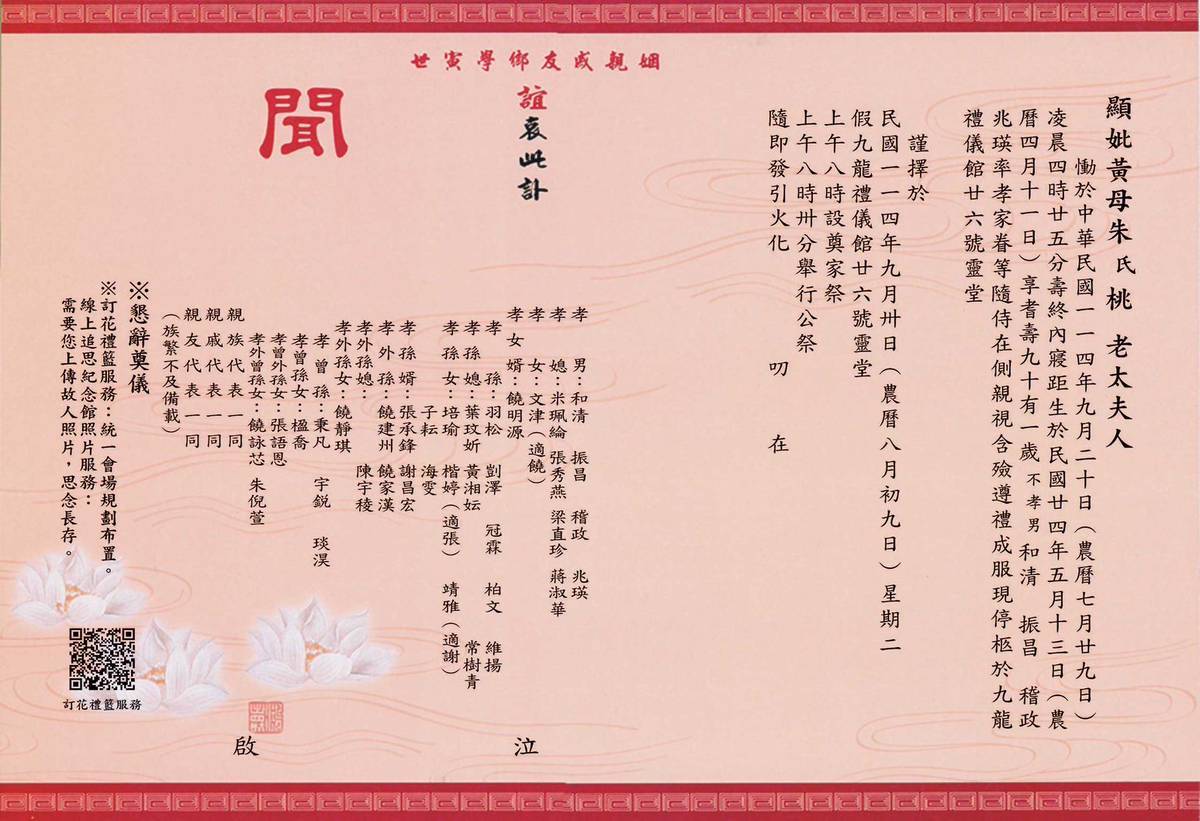 顯妣黃母朱氏桃 老太夫人
慟於中華民國一一四年九月二十日（農曆七月廿九日）
凌晨四時廿五分壽終內寢距生於民國廿四年五月十三日（農
曆四月十一日）享耆壽九十有一歲不孝男和清 振昌 稽政
兆瑛率孝家眷等隨侍在側親視含殮遵禮成服現停柩於九龍
禮儀館廿六號靈堂
謹擇於
民國一一四年九月卅日（農曆八月初九日）星期二
假九龍禮儀館廿六號靈堂
上午八時設奠家祭
上午八時卅分舉行公祭
隨即發引火化 叨 在
姻親戚友鄉學寅世
誼
哀此訃
聞
孝 男：和清 振昌 稽政 兆瑛
孝 媳：米珮綸 張秀燕 梁直珍 蔣淑華
孝 女：文津（適饒）
孝女 婿：饒明源
孝 孫：羽松 劃澤 冠霖 柏文 維揚
孝 孫 媳：葉玟妡 黃湘妘 常樹青
孝 孫 女：培瑜 楷婷（適張） 靖雅（適謝）
子耘 海雯
孝 孫 婿：張承鋒 謝昌宏
孝 外 孫：饒建州 饒家漢
孝外孫媳： 陳宇稜
孝外孫女：饒靜琪
孝 曾 孫：秉凡 宇銳 琰淏
孝曾孫女：楹喬
孝曾外孫女：張語恩
孝外曾孫女：饒詠芯 朱倪萱
親族代表一同
親戚代表一同
親友代表一同
（族繁不及備載）
泣
啟
※懇辭奠儀
※訂花禮籃服務：統一會場規劃布置。
線上追思紀念館照片服務：
需要您上傳故人照片，思念長存。
訂花禮籃服務